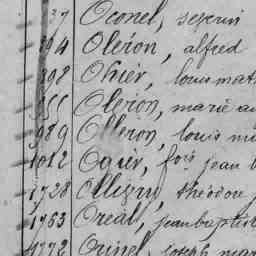 37 Oconel, séverin
394 Oléron, alfred
898 Ohier, louis mat
955 Oléron, marie au
989 Olleron, louis mi
1012 Ogier, fois jean b
1728 Olligny, théodore
1753 Oréal, jean baptist
1772 Orinel, joseph mari